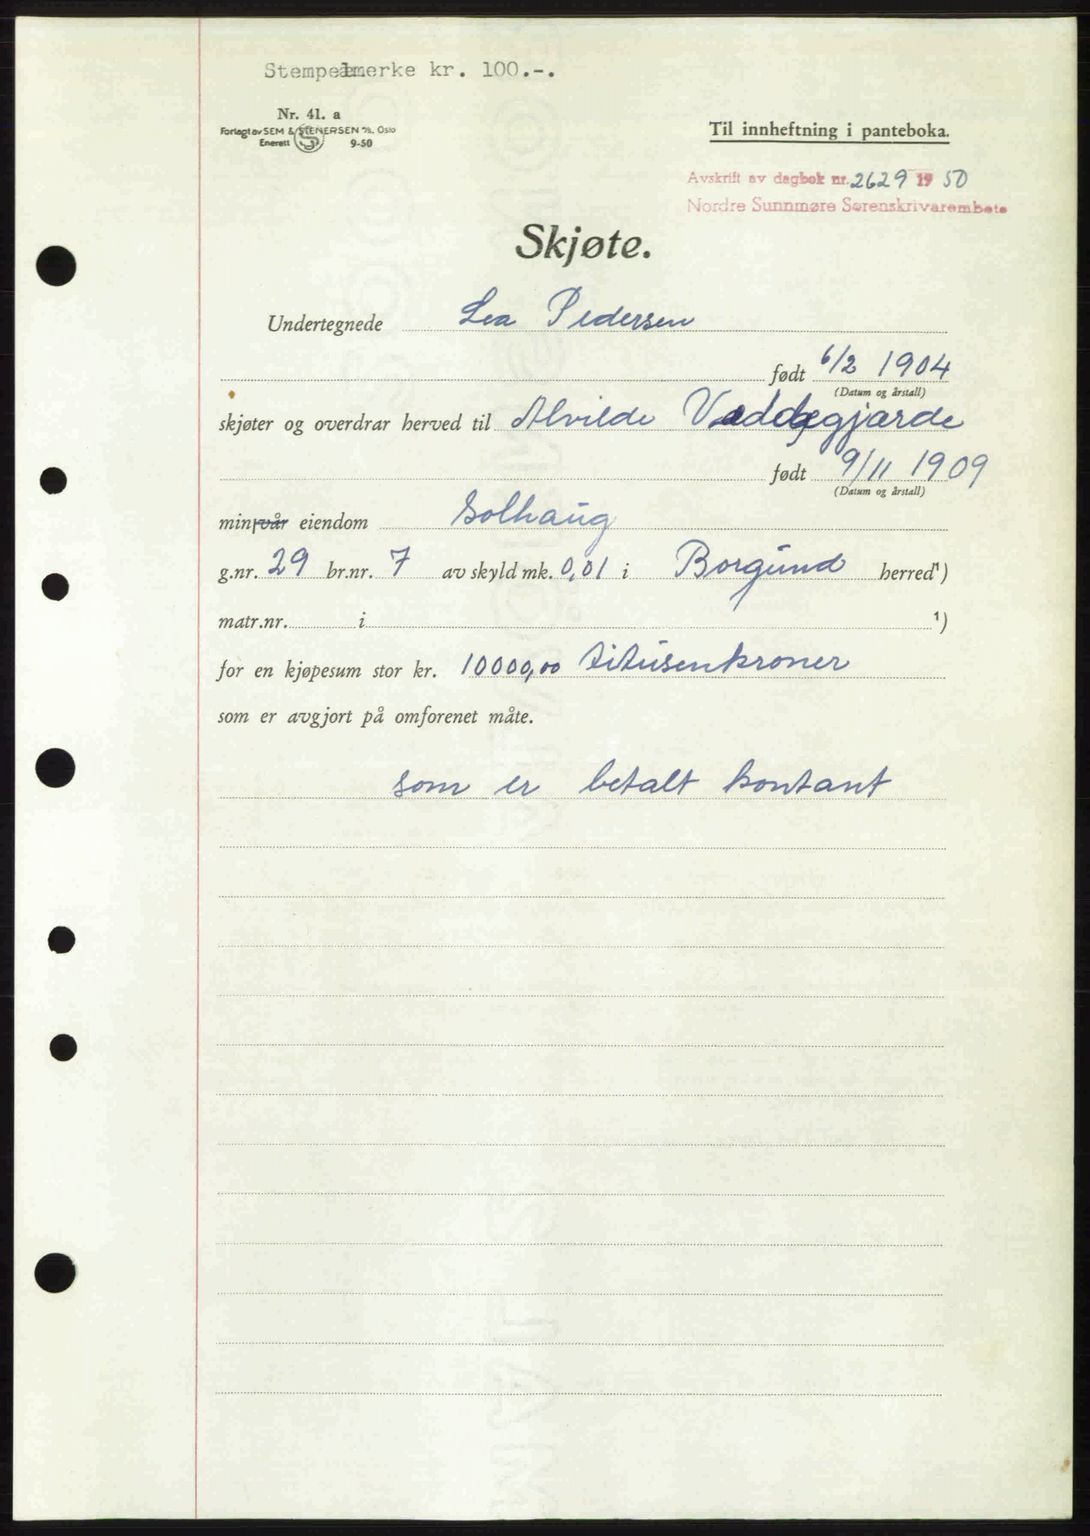 Stempelmerke kr. 100.-.
Nr. 41. a
Forlagt av SEM & STENERSEN A/S. Oslo
Enerett 9-50
Til innheftning i panteboka.
Avskrift av dagbok nr. 2629 19 50
Nordre Sunnmøre Sorenskrivarembete
Skjøte.
Undertegnede Lea Pedersen
født 6/2 1904
(Datum og årstall)
skjøter og overdrar herved til Alvilde Vaddegjærde
født 9/11 1909
(Datum og årstall)
min/vår eiendom Solhaug
g.nr. 29 br.nr. 7 av skyld mk. 0,01 i Borgund herred¹)
matr.nr. i ¹)
for en kjøpesum stor kr. 10000,00 titusenkroner
som er avgjort på omforenet måte.
som er betalt kontant